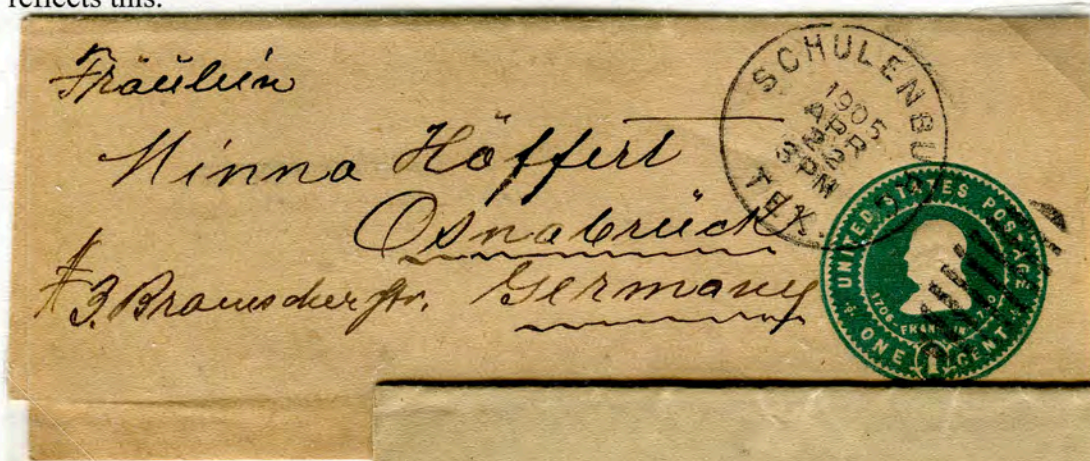 reflects this.
Fräulein
Minna Höffert
Osnabrück
# 3. Bramscherstr. Germany
SCHULENBURG
1905
APR
22
3 PM
TEX.
UNITED STATES POSTAGE
1706 FRANKLIN 1790
ONE 1 CENT